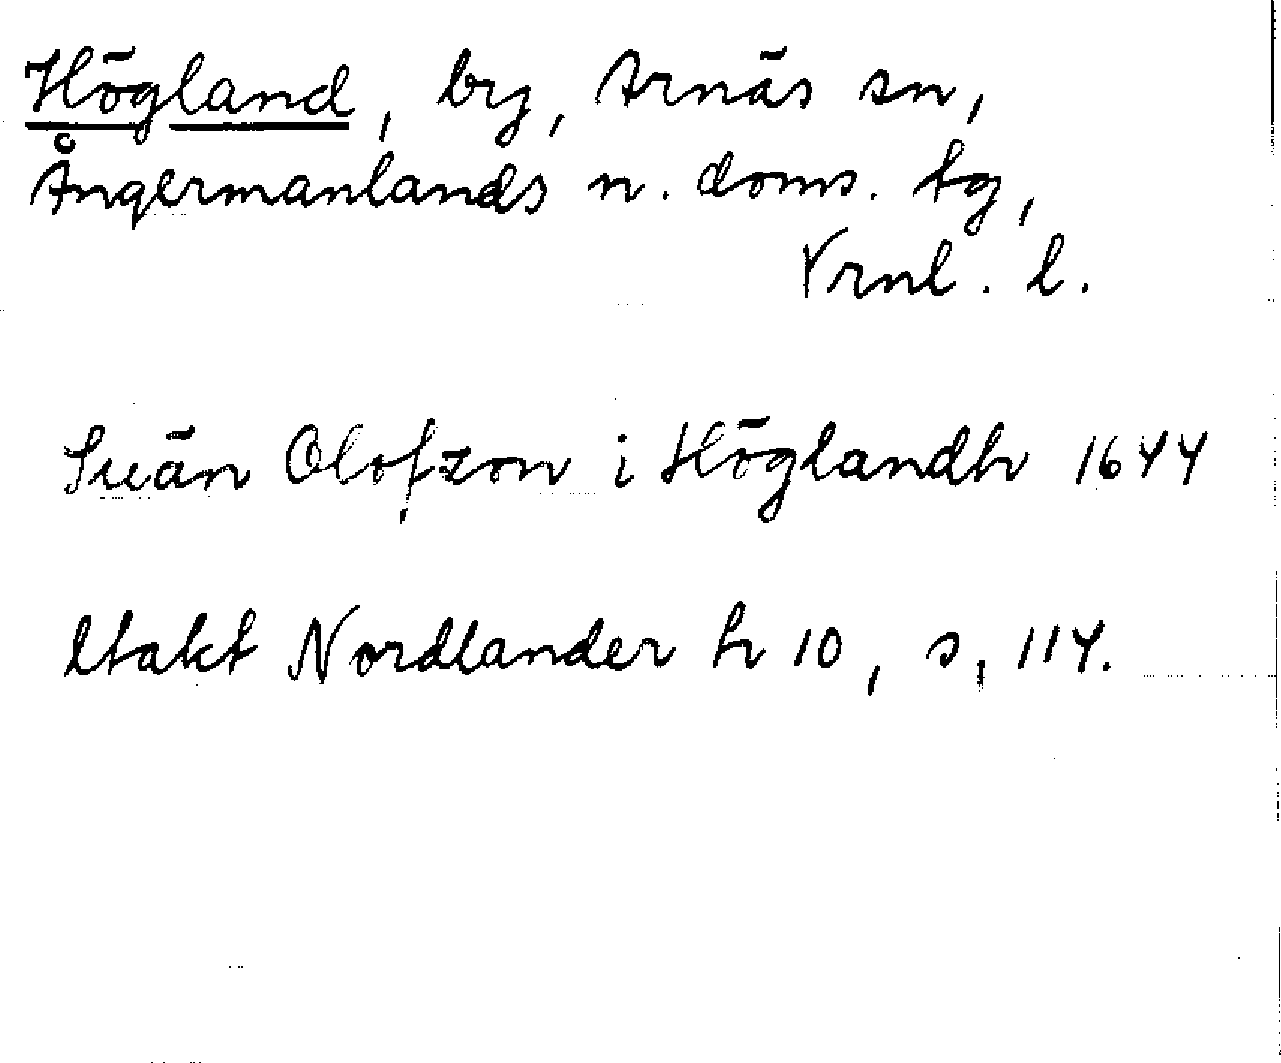 Högland, by, Arnäs sn,
Ångermanlands n. doms. tg,
Vrnl. l.
Suän Olofzon i Höglandh 1644
Utakt Nordlander h 10, s, 114.